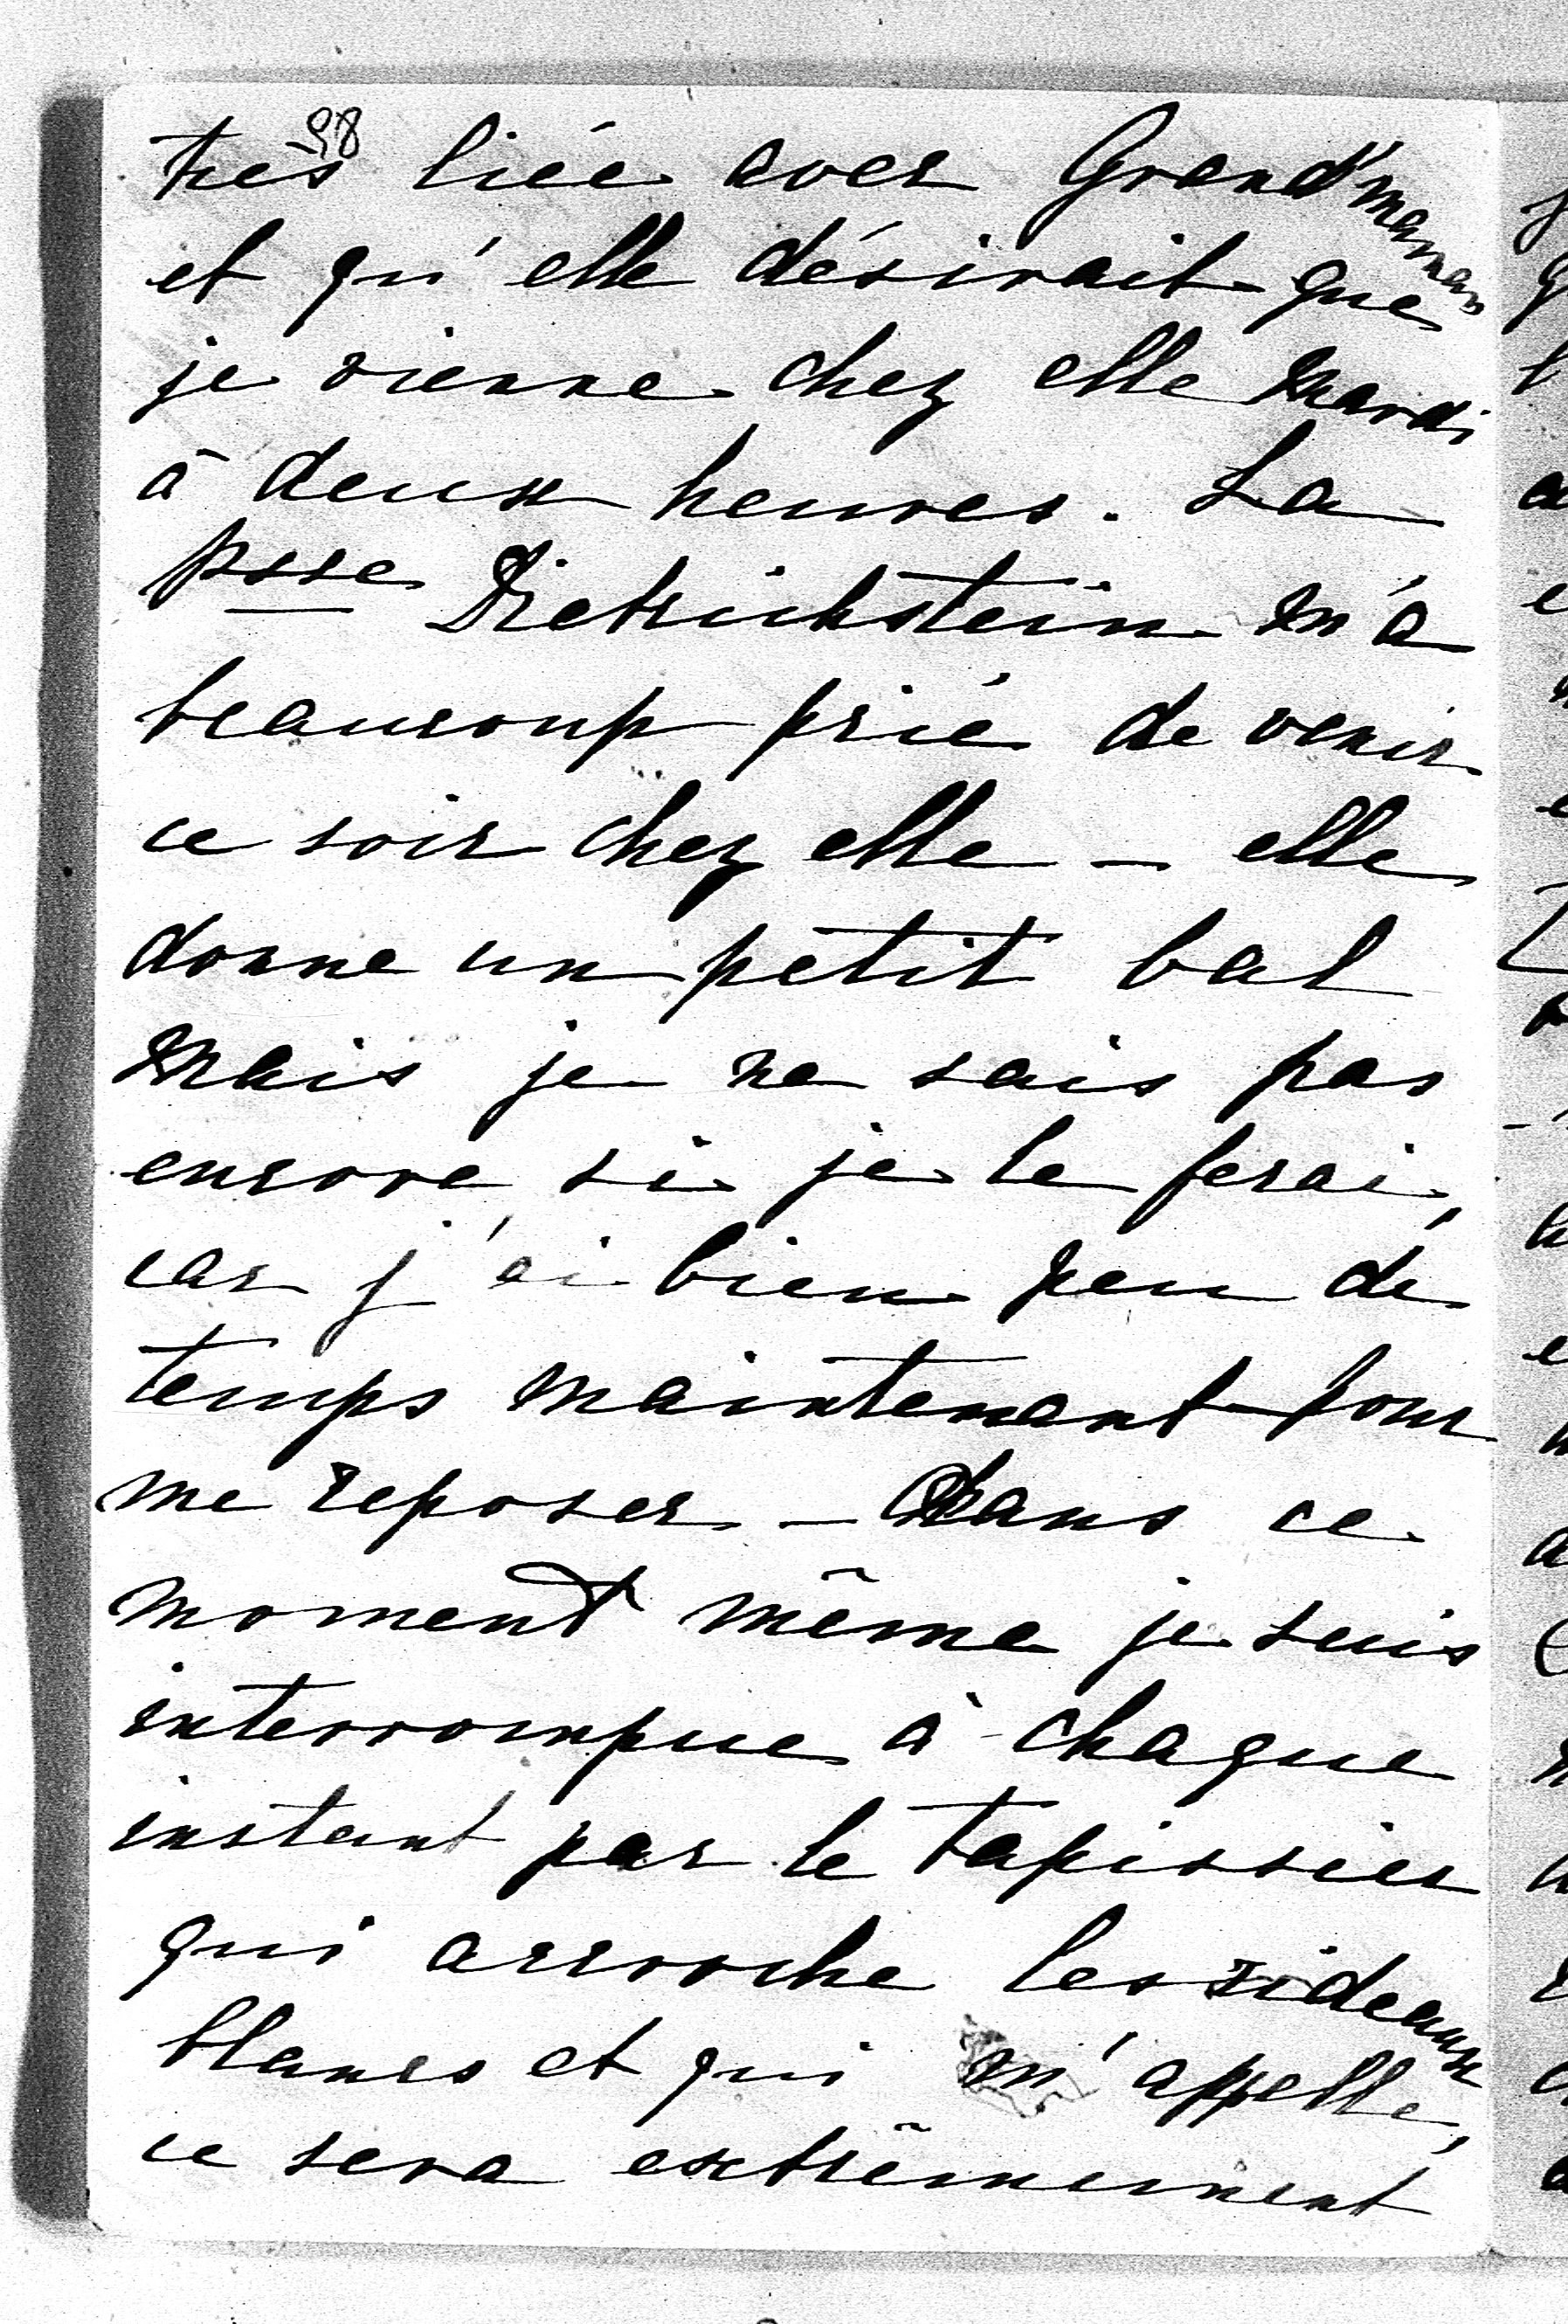 98
très liée avec Grand'maman
et qu'elle désirait que
je vienne chez elle mardi
à deux heures. La
Psse Dietrichstein m'a
beaucoup prié de venir
ce soir chez elle — elle
donne un petit bal
mais je ne sais pas
encore si je le ferai,
car j'ai bien peu de
temps maintenant pour
me reposer. — Dans ce
moment même je suis
interrompue à chaque
instant par le tapissier
qui accroche les rideaux
blancs et qui m'appelle,
ce sera extrêmement